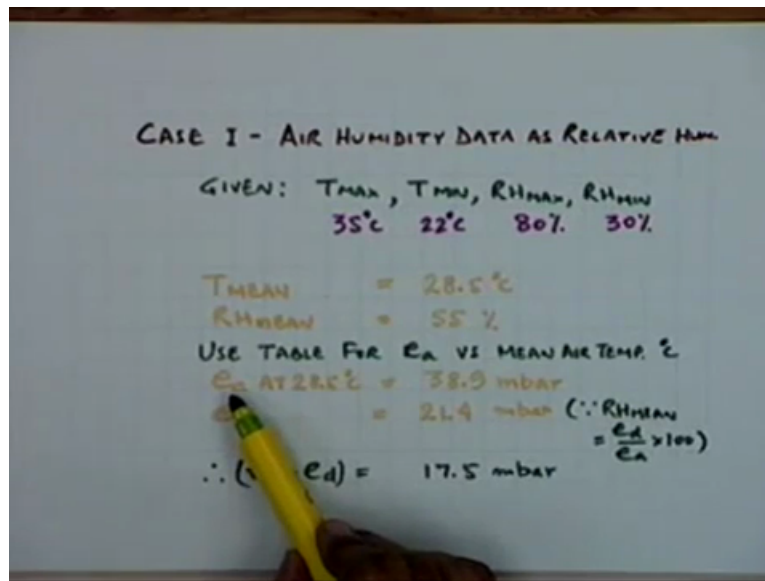 CASE I - AIR HUMIDITY DATA AS RELATIVE HUM.
GIVEN: TMAX, TMIN, RHMAX, RHMIN
35°C 22°C 80% 30%
TMEAN = 28.5°C
RHMEAN = 55 %
USE TABLE FOR ea VS MEAN AIR TEMP. °C
ea AT 28.5°C = 38.9 mbar
= 21.4 mbar (∵ RHMEAN
= ed/ea × 100)
∴ ( ed) = 17.5 mbar